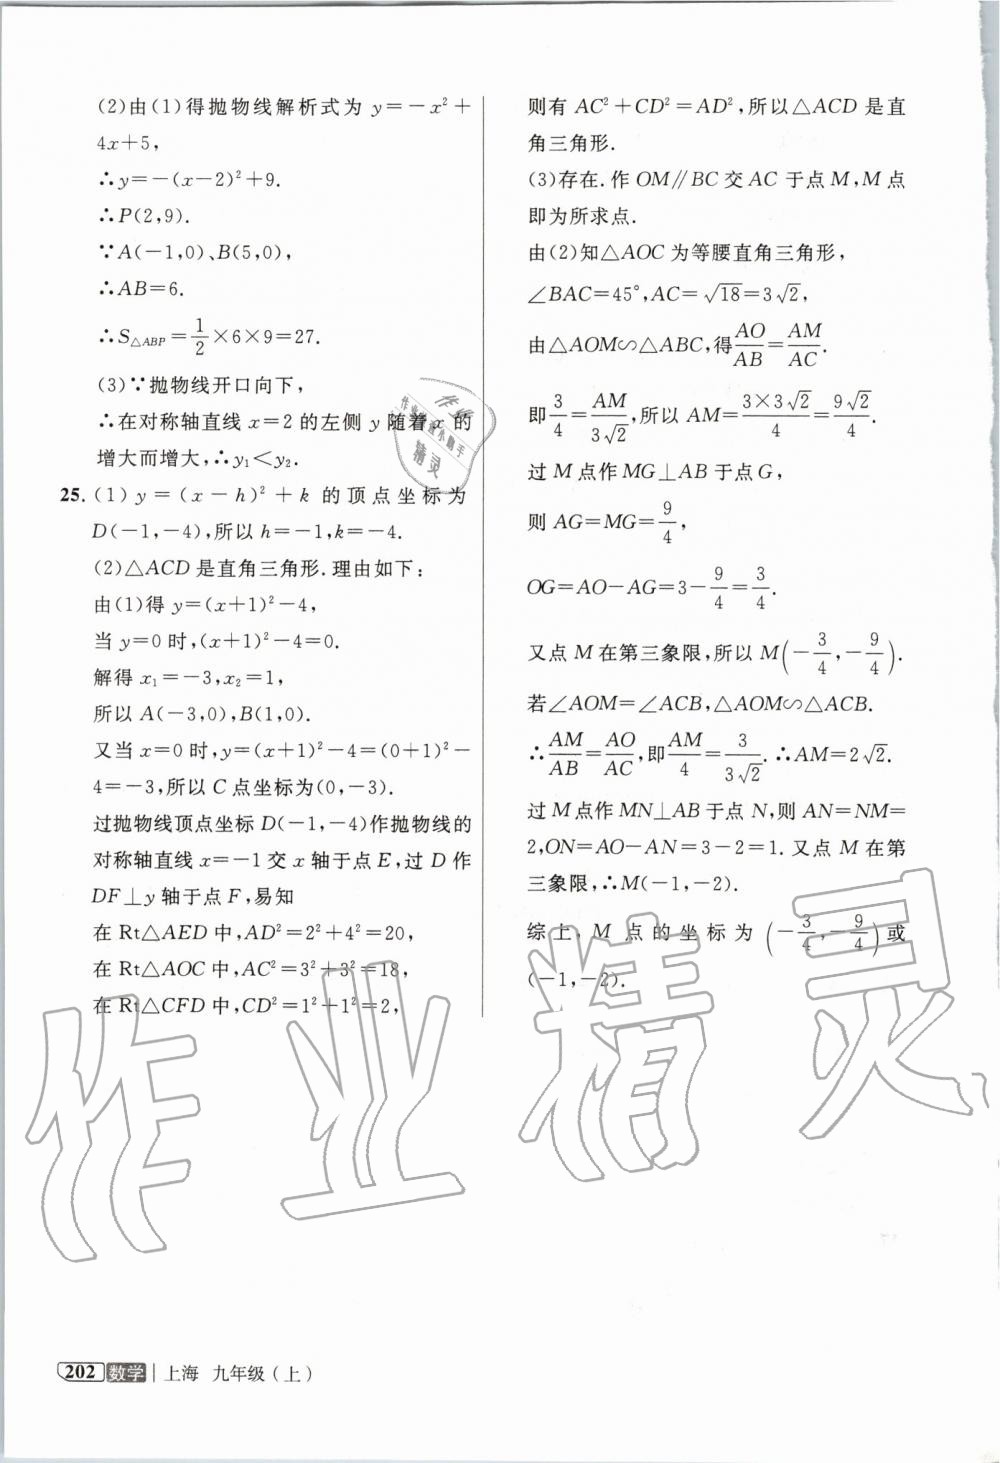 (2)由(1)得抛物线解析式为 y=-x²+
4x+5,
∴y=-(x-2)²+9.
∴P(2,9).
∵A(-1,0)、B(5,0),
∴AB=6.
∴S△ABP=1/2×6×9=27.
(3)∵抛物线开口向下,
∴在对称轴直线 x=2 的左侧 y 随着 x 的
增大而增大,∴y₁<y₂.
25. (1) y=(x-h)²+k 的顶点坐标为
D(-1,-4),所以 h=-1,k=-4.
(2)△ACD 是直角三角形.理由如下:
由(1)得 y=(x+1)²-4,
当 y=0 时,(x+1)²-4=0.
解得 x₁=-3,x₂=1,
所以 A(-3,0),B(1,0).
又当 x=0 时,y=(x+1)²-4=(0+1)²-
4=-3,所以 C 点坐标为(0,-3).
过抛物线顶点坐标 D(-1,-4)作抛物线的
对称轴直线 x=-1 交 x 轴于点 E,过 D 作
DF⊥y 轴于点 F,易知
在 Rt△AED 中,AD²=2²+4²=20,
在 Rt△AOC 中,AC²=3²+3²=18,
在 Rt△CFD 中,CD²=1²+1²=2,
则有 AC²+CD²=AD²,所以△ACD 是直
角三角形.
(3)存在.作 OM∥BC 交 AC 于点 M,M 点
即为所求点.
由(2)知△AOC 为等腰直角三角形,
∠BAC=45°,AC=√18=3√2,
由△AOM∽△ABC,得AO/AB=AM/AC.
即3/4=AM/3√2,所以 AM=3×3√2/4=9√2/4.
过 M 点作 MG⊥AB 于点 G,
则 AG=MG=9/4,
OG=AO-AG=3-9/4=3/4.
又点 M 在第三象限,所以 M(-3/4,-9/4).
若∠AOM=∠ACB,△AOM∽△ACB.
∴AM/AB=AO/AC,即AM/4=3/3√2.∴AM=2√2.
过 M 点作 MN⊥AB 于点 N,则 AN=NM=
2,ON=AO-AN=3-2=1.又点 M 在第
三象限,∴M(-1,-2).
综上,M 点的坐标为(-3/4,-9/4)或
(-1,-2).
作业精灵
202 数学 上海 九年级(上)